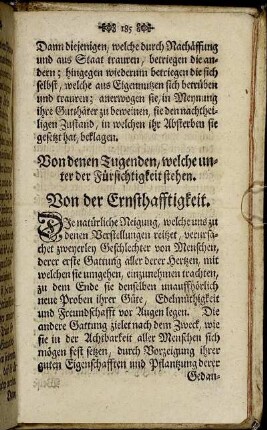 185
Dann diejenigen, welche durch Nachäffung
und aus Staat trauren, betriegen die an-
dern; hingegen wiederum betriegen die sich
selbst, welche aus Eigennutzen sich betrüben
und trauren; anerwogen sie, in Meynung
ihre Gutthäter zu beweinen, sie den nachthei-
ligen Zustand, in welchen ihr Absterben sie
gesetzt hat, beklagen.
Von denen Tugenden, welche un-
ter der Fürsichtigkeit stehen.
Von der Ernsthafftigkeit.
Die natürliche Neigung, welche uns zu
denen Verstellungen reitzet, verursa-
chet zweyerley Geschlechter von Menschen,
derer erste Gattung aller derer Hertzen, mit
welchen sie umgehen, einzunehmen trachten,
zu dem Ende sie denselben unaufhörlich
neue Proben ihrer Güte, Edelmüthigkeit
und Freundschafft vor Augen legen. Die
andere Gattung zielet nach dem Zweck, wie
sie in der Achtbarkeit aller Menschen sich
mögen fest setzen, durch Vorzeigung ihrer
guten Eigenschafften und Pflantzung derer
Gedan-